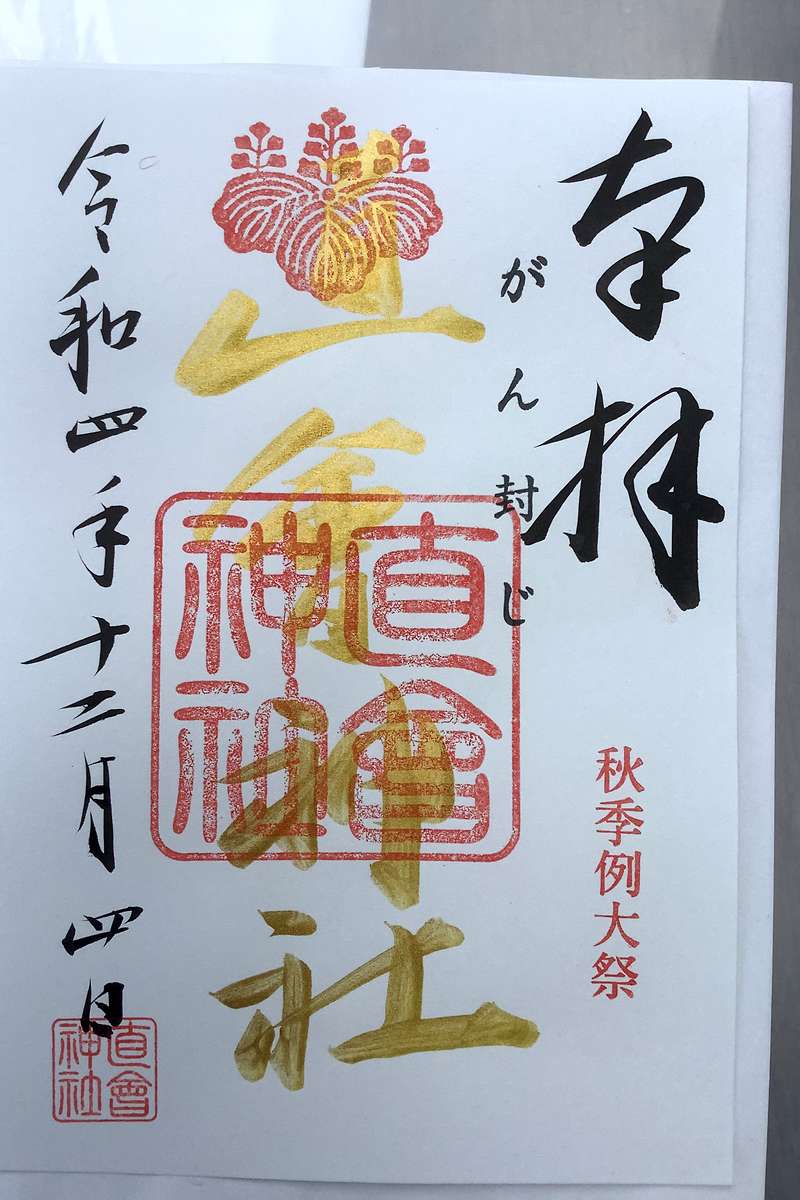 奉拝
がん封じ
秋季例大祭
直會神社
直會神社
令和四年十二月四日
直會神社